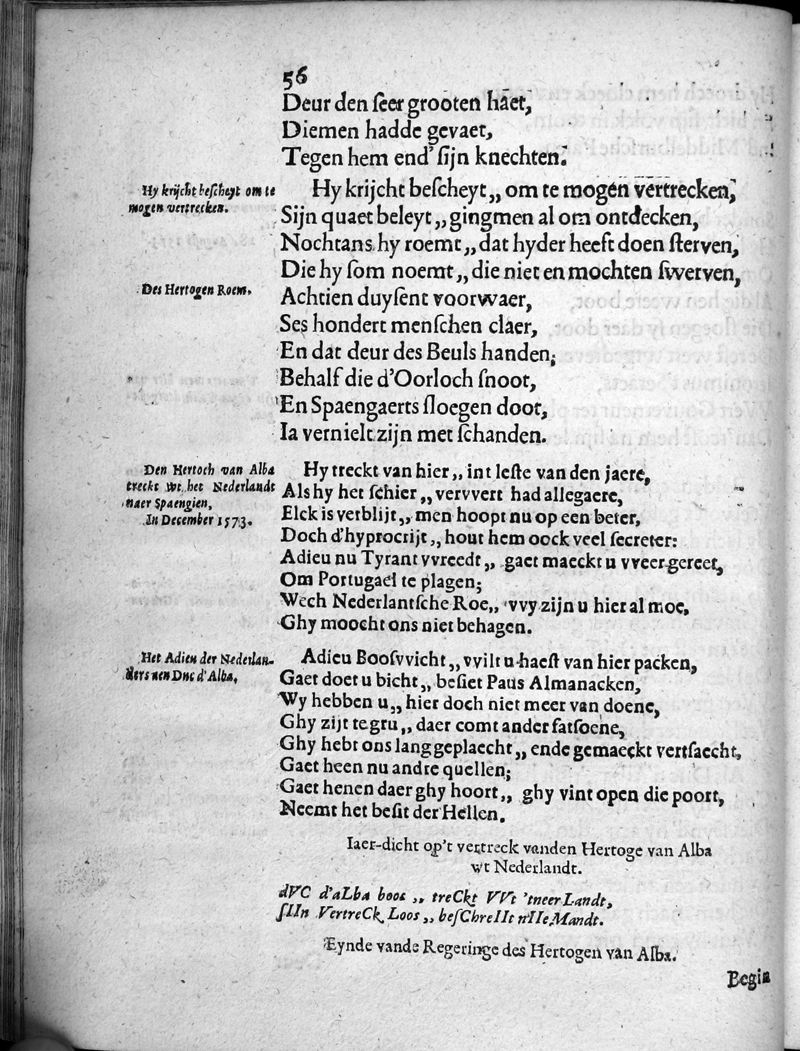 56
Deur den ſeer grooten haet,
Diemen hadde gevaet,
Tegen hem end' ſijn knechten.
Hy krijcht beſcheyt om te
mogen vertrecken.
Hy krijcht beſcheyt,, om te mogen vertrecken,
Sijn quaet beleyt,, gingmen al om ontdecken,
Nochtans hy roemt,, dat hyder heeft doen ſterven,
Die hy ſom noemt,, die niet en mochten ſwerven,
Des Hertogen Roem.
Achtien duyſent voorwaer,
Ses hondert menſchen claer,
En dat deur des Beuls handen;
Behalf die d'Oorloch ſnoot,
En Spaengaerts ſloegen doot,
Ia vernielt zijn met ſchanden.
Den Hertoch van Alba
treckt wt het Nederlandt
naer Spaengien,
In December 1573.
Hy treckt van hier,, int leſte van den jaere,
Als hy het ſchier,, vervvert had allegaere,
Elck is verblijt,, men hoopt nu op een beter,
Doch d'hyprocrijt,, hout hem oock veel ſecreter:
Adieu nu Tyrant vvreedt,, gaet maeckt u vveer gereet,
Om Portugael te plagen;
Wech Nederlantſche Roe,, vvy zijn u hier al moe,
Ghy moocht ons niet behagen.
Het Adieu der Nederlan-
ders aen Duc d'Alba.
Adieu Booſvvicht,, vvilt u haeſt van hier packen,
Gaet doet u bicht,, beſiet Paus Almanacken,
Wy hebben u,, hier doch niet meer van doene,
Ghy zijt te gru,, daer comt ander fatſoene,
Ghy hebt ons lang geplaecht,, ende gemaeckt vertſaecht,
Gaet heen nu andre quellen;
Gaet henen daer ghy hoort,, ghy vint open die poort,
Neemt het beſit der Hellen.
Iaer-dicht op't vertreck vanden Hertoge van Alba
wt Nederlandt.
dVC d'aLba boos,, treCkt VVt 'tneerLandt,
ſIIn VertreCk Loos,, beſChreIIt nIIeMandt.
Eynde vande Regeringe des Hertogen van Alba.
Begin